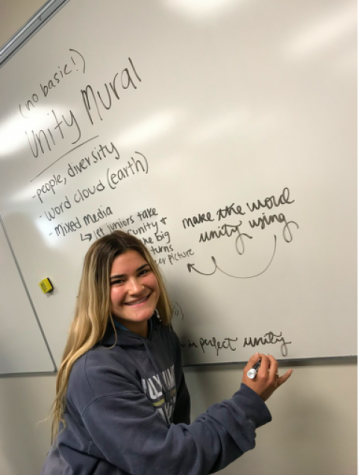 (no basic!)
Unity Mural
- people, diversity
- word cloud (earth)
- Mixed Media
↳ let juniors take
unity +
the big
turns
picture
make the word
unity using
perfect unity